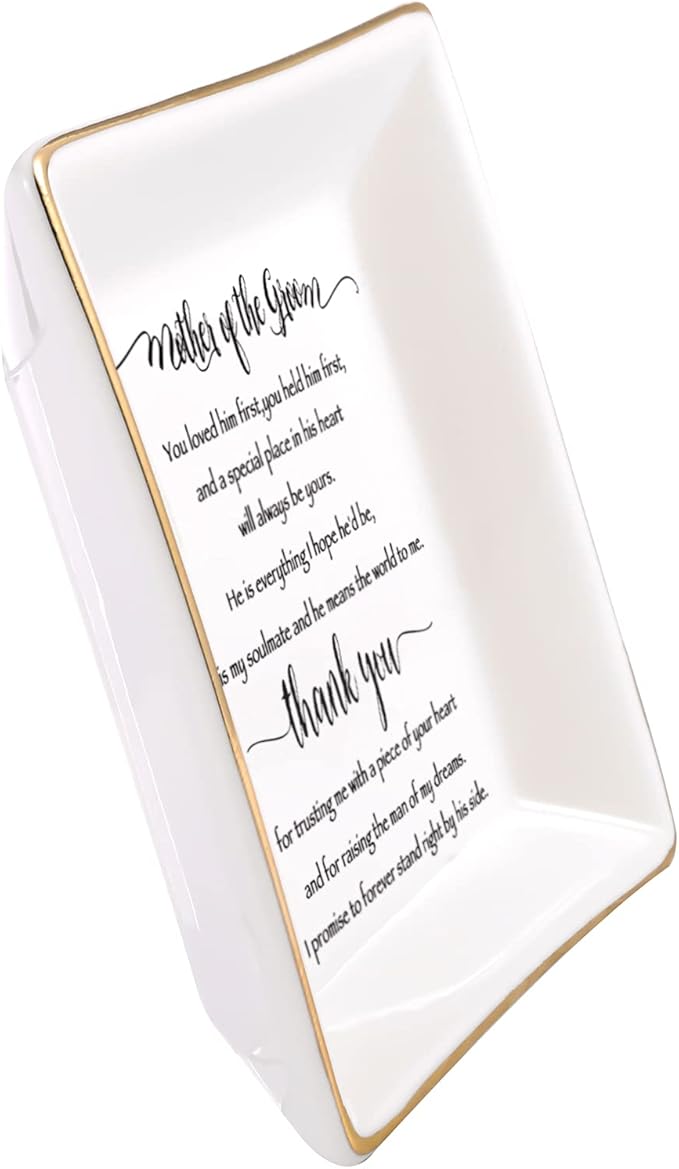 Mother of the Groom
You loved him first,you held him first,
and a special place in his heart
will always be yours.
He is everything I hope he'd be,
is my soulmate and he means the world to me.
thank you
for trusting me with a piece of your heart
and for raising the man of my dreams.
I promise to forever stand right by his side.